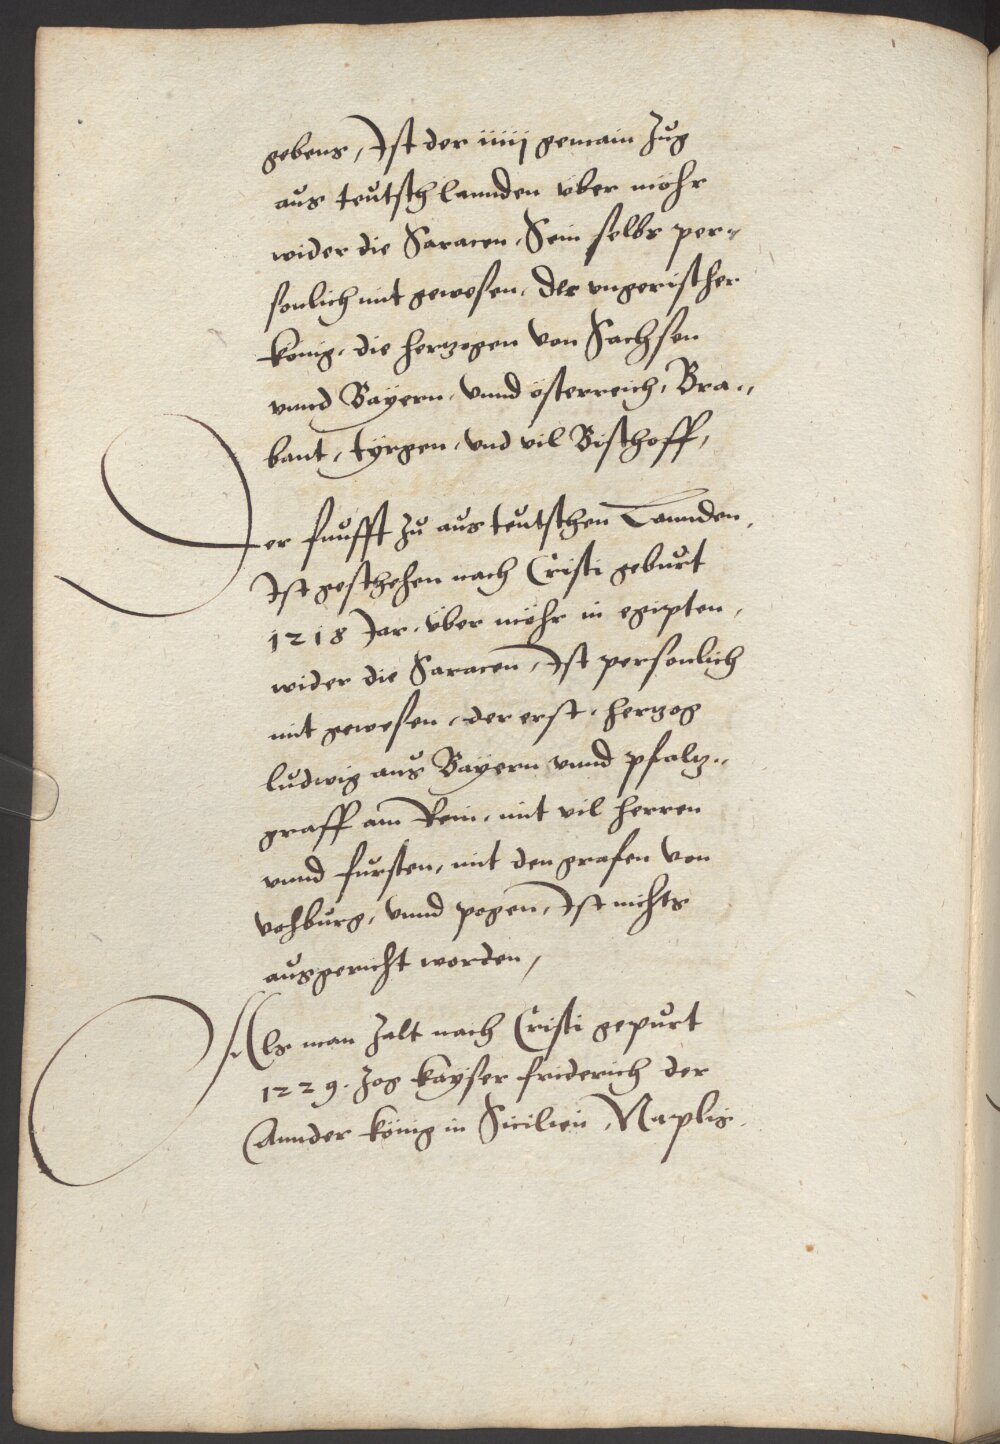 gebens, Ist der iiiij gemain Zug
aus teutsch lannden vber möhr
wider die Saracen, Sein selbs per-
sonlich mit gewesen, der vngerischer
konig, die hertzogen von Sachsen
vnnd Baÿern, vnnd österreich, Bra-
bant, tÿrgen, vnd vil Bischoff,
Der funfft zu aus teutschen Lannden,
Ist geschehen nach Cristi geburt
1218 Jar, vber möhr in egipten,
wider die Saracen, Ist personlich
mit gewesen, der erst, hertzog
ludwig aus Baÿern vnnd pfaltz-
graff am Rein, mit vil herren
vnnd fursten, mit den grafen von
vohburg, vnnd pogen, Ist nichts
ausgericht worden,
Als man Zalt nach Cristi gepurt
1229. Zog kaÿser friderich der
Annder könig in Sicilien, Naplis,